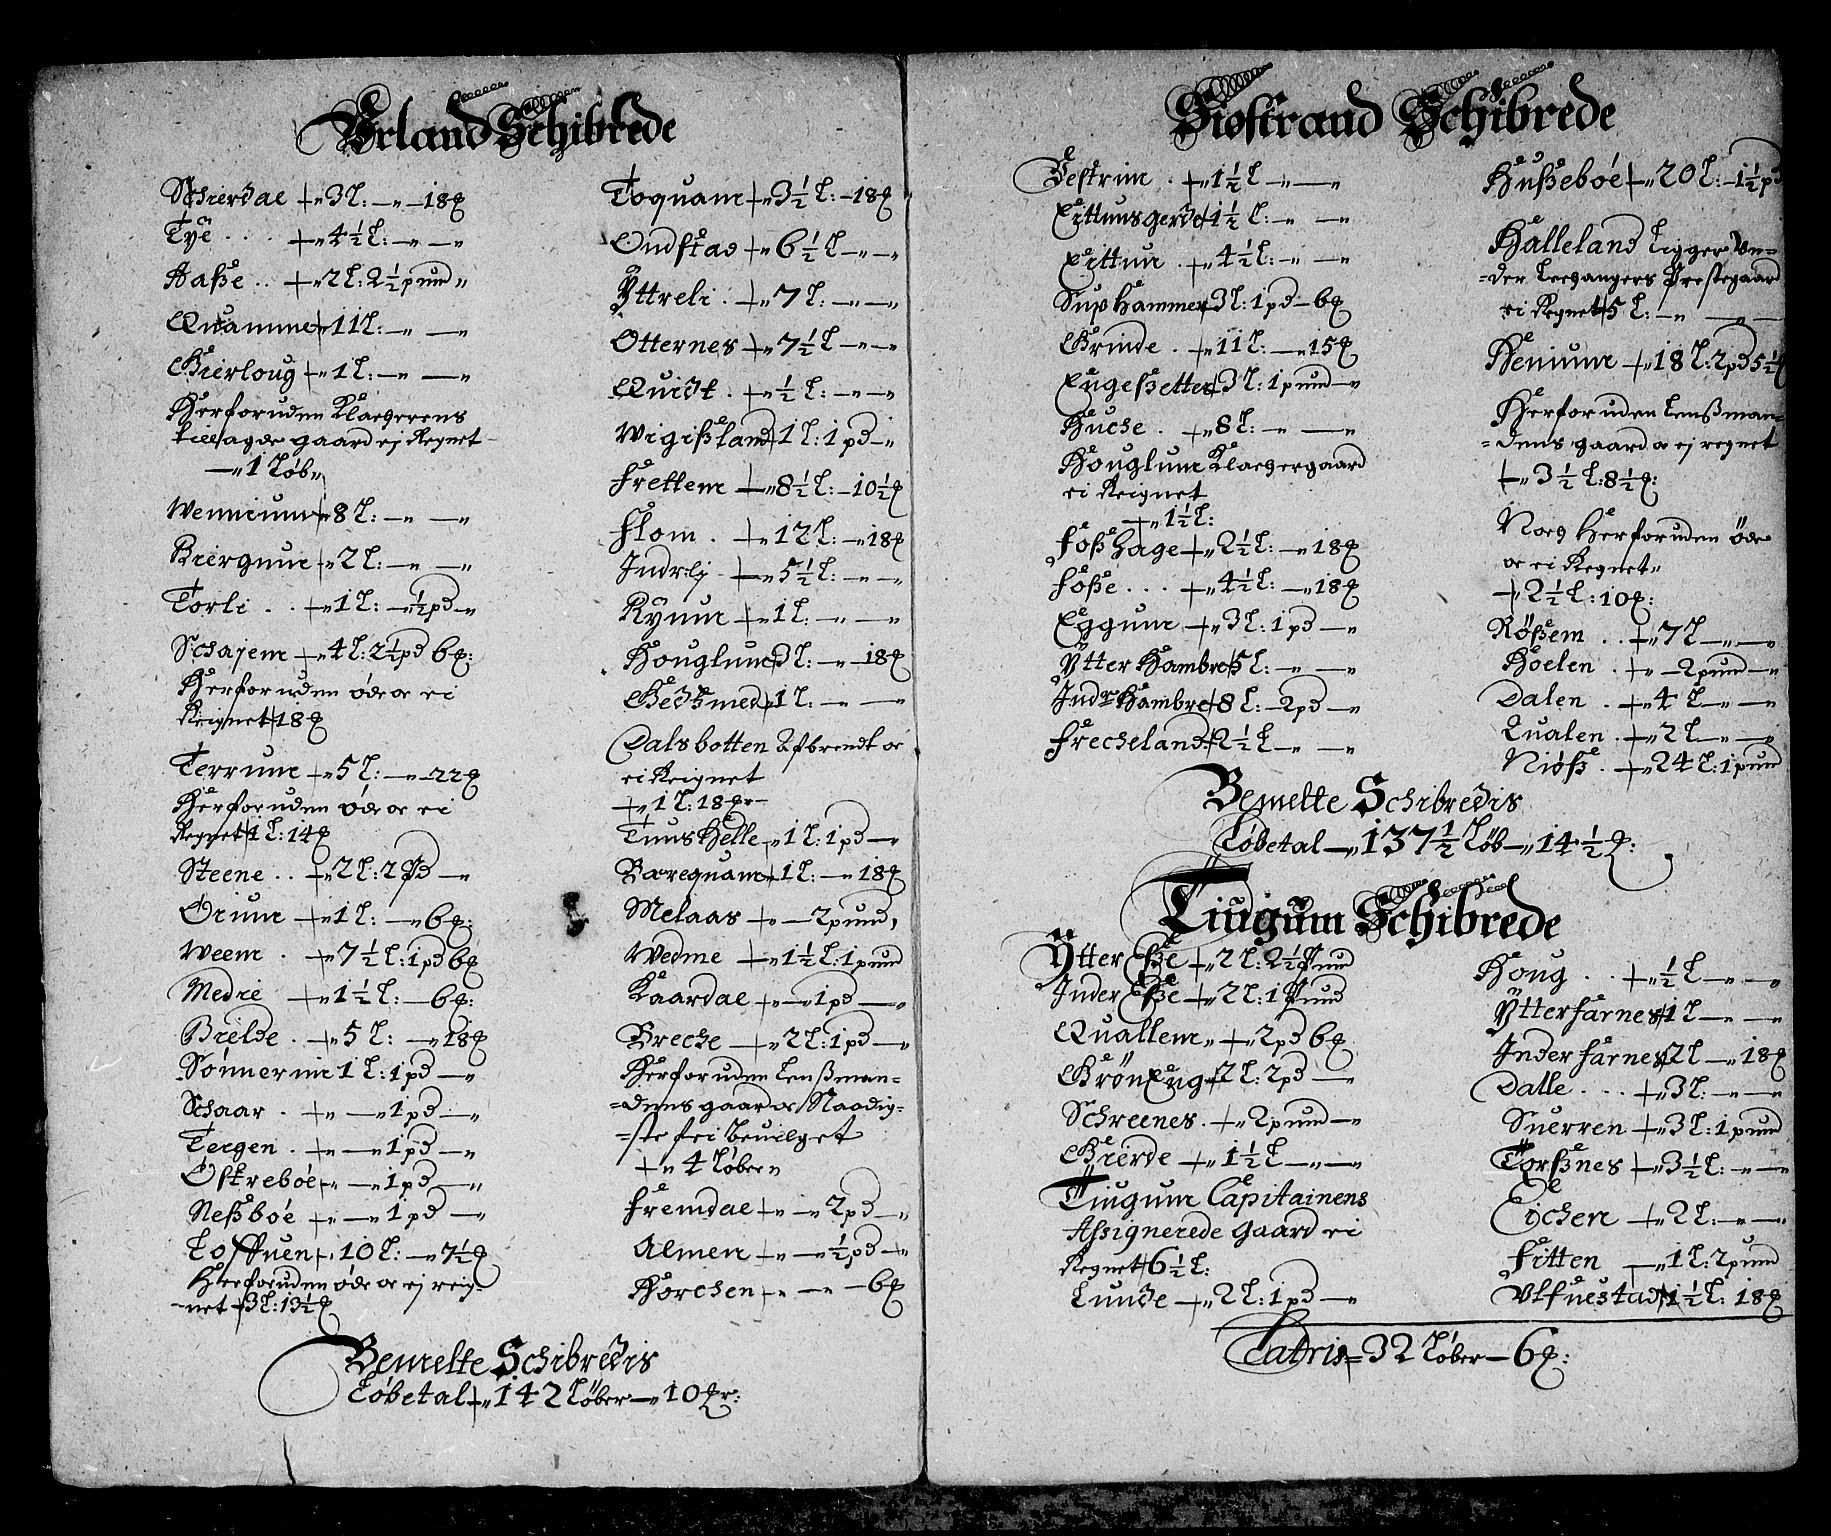 Urland Schibrede
Schierdae + 3 L: — 18 ₰
Tÿe . . . + 4½ L: — —
Aasße . . + 2 L: 2½ pund
Quamme + 11 L: — —
Gierloug + 1 L: — —
Herforuden Klaegerens
tillagde gaard ej Regnet
— 1 Løb
Wennium + 8 L: — —
Biergum + 2 L: — —
Torli . . + 1 L: — ½ pd —
Schajem + 4 L: 2½ pd 6 ₰:
Herforuden øde er ei
Reignet 18 ₰
Terrum + 5 L: — 22 ₰
Herforuden øde er ei
Regnet 1 L: 14 ₰
Steene . . + 2 L: 2 pd —
Orum + 1 L: — 6 ₰:
Weem . + 7½ L: 1 pd 6 ₰
Medie + 1½ L: — 6 ₰:
Brelde . + 5 L: — 18 ₰
Sønnerim 1 L: 1 pd —
Schaar . + — 1 pd —
Tergen . + — 1 pd —
Østreboe + — 1 pd —
Neßboe + — 1 pd —
Loffuen + 10 L: — 7½ ₰
Herforuden øde er ej reig-
net 3 L: 13½ ₰
Toquam + 3½ L: — 18 ₰
Ondstad + 6½ L — —
Ÿttreli . + 7 L: — —
Otternes + 7½ L — —
Quidt . + ½ L: — —
Wigißland + 1 L: 1 pd —
Frettem + 8½ L: — 10½ ₰
Flom . + 12 L: — 18 ₰
Indrlj . + 5½ L: — —
Rÿnum + 1 L: — —
Houglum 3 L: — 18 ₰
Gedtmed 1 L: — —
Dalsbotten Afbrendt er
ei Reignet
+ 1 L: 18 ₰r
Tuushelle 1 L: 1 pd —
Bærequam + 1 L: — 18 ₰
Melaas + — 2 pund
Wedme + 1½ L: 1 pund
Kaardae + — 1 pd —
Breche + 2 L: 1 pd —
Herforuden Lenßman-
-dens gaard er Naadig-
-ste fri beuilget
+ 4 Løber
Fremdae + — 2 pd —
Almen + — ½ pd —
Horchen + — — 6 ₰
Bemelte Schibredis
Løbetal + 142 Løber — 10 ₰r:
Siøstrand Schibrede
Festrim . + 1½ L — —
Eittunsgerde + 1½ L: — —
Eittun . + 4½ L: — —
Suphammer 3 L: 1 pd 6 ₰
Grinde . + 11 L: — 15 ₰
Engeßetter 3 L: 1 pund
Huche . + 8 L: — —
Houglum Klaegergaard
ei Reignet
+ 1½ L:
Foßhage + 2½ L: — 18 ₰
Foße . . . + 4½ L: — 18 ₰
Eggum + 3 L: 1 pd —
Ÿtter Hambre 5 L: — —
Indr Hambre 8 L: — 2 pd —
Frecheland 2½ L — —
Hußeboe + 20 L: — 1½ pd
Halleland Ligger Un-
-der Leegangers Prestegaard
ei Regnet 5 L: — —
Henium + 18 L: 2 pd 5½ ₰
Herforuden Lenßman-
-dens gaard er ej regnet
+ 3½ L: 8½ ₰:
Norg Herforuden øde
er ei Regnet
+ 2½ L: 10 ₰:
Rößem . . + 7 L — —
Hoelen . + — 2 pund —
Dalen . + 4 L — —
Qualen . + 2 L — —
Niøß . + 24 L: 1 pund
Bemelte Schibredis
Løbetal — 137½ Løb — 14½ ₰:
Tingum Schibrede
Ÿtter Eße + 2 L: 2½ Pund
Inder Eße + 2 L: 1 Pund
Quallem + 2 pd 6 ₰
Gröneng 2 L: 2 pd —
Schreenes . + 2 pund —
Gierde + 1½ L — —
Tingum Capitainens
Assignerede Gaard ei
Regnet 6½ L:
Lunde + 2 L: 1 pd —
Houg . . + ½ L — —
Ÿtterfarnes 1 L — —
Inder farnes 2 L — 18 ₰
Dalle . . . + 3 L: — —
Suerren + 3 L: 1 pund
Torßnes + 3½ L: — —
Eÿchen + 2 L: — —
Fitten — 1 L: 2 pund
Ulfuestad 1½ L: 18 ₰
Latris 32 Løber — 6 ₰: